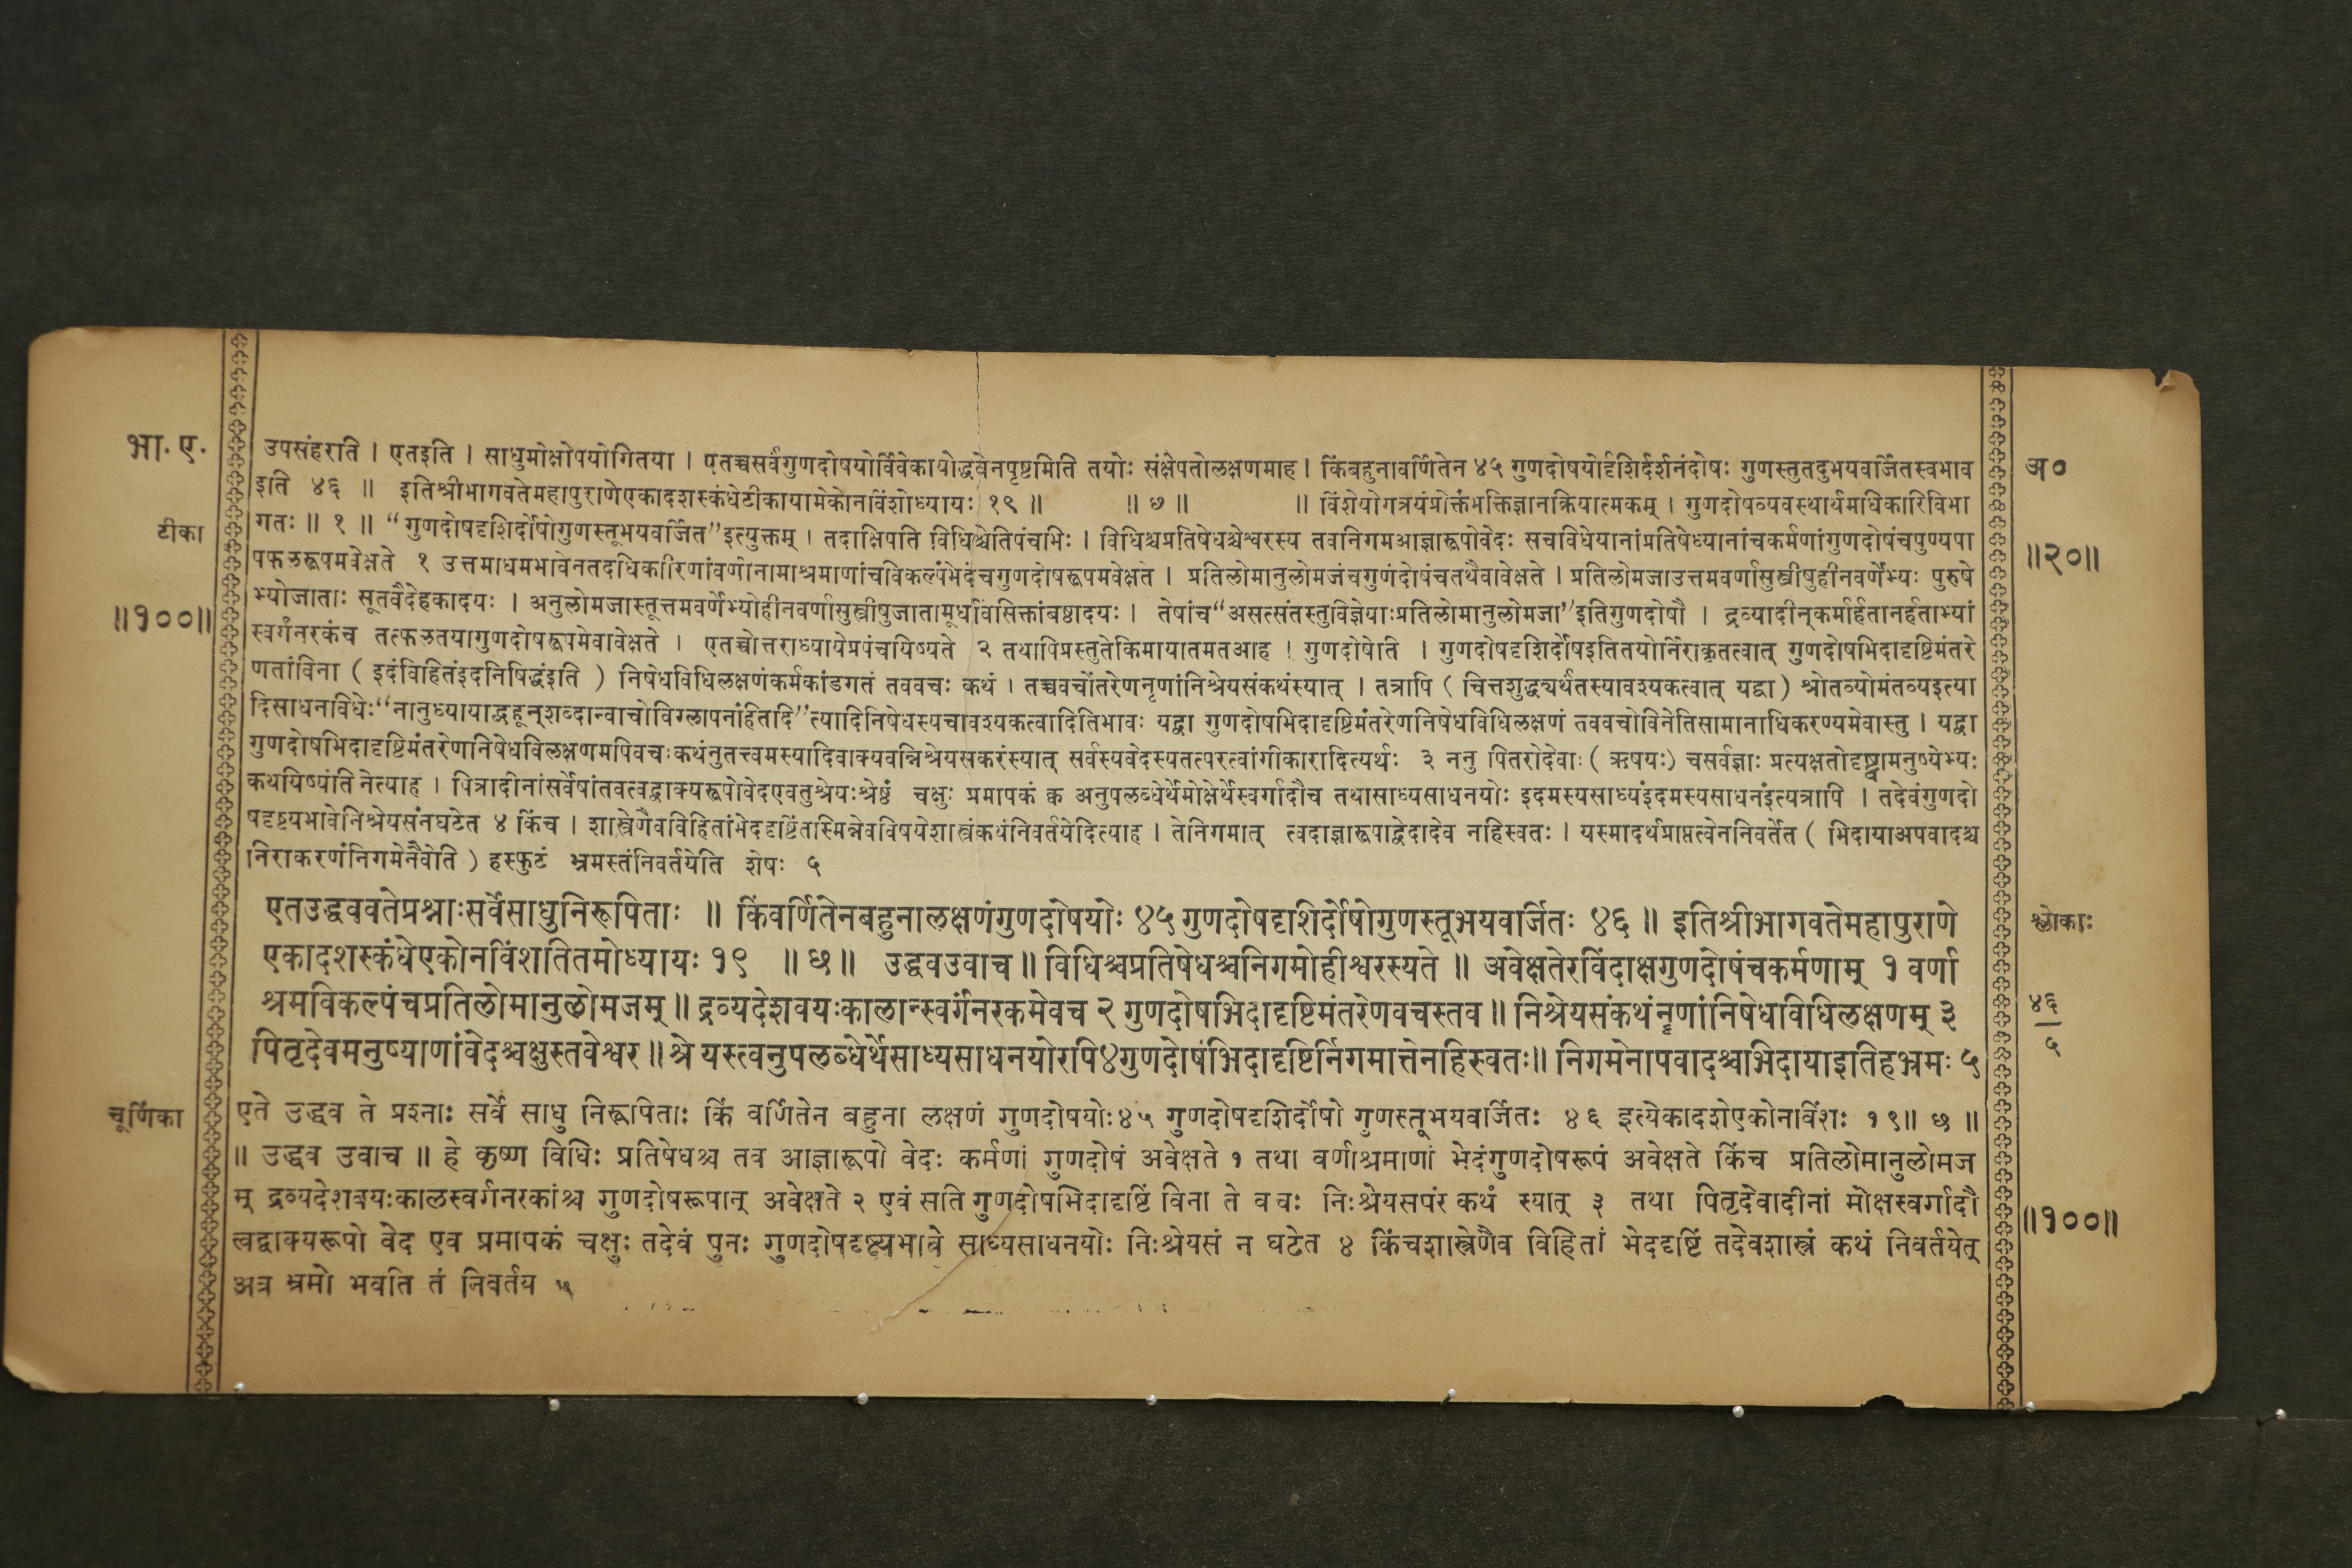 भा. ए.
टीका
॥१००॥
उपसंहरति । एतइति । साधुमोक्षोपयोगितया । एतच्चसर्वंगुणदोषयोर्विवेकायोद्धवेनपृष्टमिति तयोः संक्षेपतोलक्षणमाह । किंबहुनावर्णितेन ४५ गुणदोषयोर्दृशिर्दर्शनंदोषः गुणस्तुतदुभयवर्जितस्वभाव
इति ४६ ॥ इतिश्रीभागवतेमहापुराणेएकादशस्कंधेटीकायामेकोनविंशोध्यायः १९ ॥ ॥ ७ ॥ ॥ विंशेयोगत्रयंप्रोक्तंभक्तिज्ञानक्रियात्मकम् । गुणदोषव्यवस्थार्थमधिकारिविभा
गतः ॥ १ ॥ “गुणदोषदृशिर्दोषोगुणस्तूभयवर्जित”इत्युक्तम् । तदाक्षिपति विधिश्चेतिपंचभिः । विधिश्चप्रतिषेधश्चेश्वरस्य तवनिगमआज्ञारूपोवेदः सचविधेयानांप्रतिषेध्यानांचकर्मणांगुणदोषंचपुण्यपा
पफलरूपमवेक्षते १ उत्तमाधमभावेनतदधिकारिणांवर्णानामाश्रमाणांचविकल्पंभेदंचगुणदोषरूपमवेक्षते । प्रतिलोमानुलोमजंचगुणंदोषंचतथैवावेक्षते । प्रतिलोमजाउत्तमवर्णासुस्त्रीषुहीनवर्णेभ्यः पुरुषे
भ्योजाताः सूतवैदेहकादयः । अनुलोमजास्तूत्तमवर्णेभ्योहीनवर्णासुस्त्रीषुजातामूर्धावसिक्तांबष्ठादयः । तेषांच“असत्संतस्तुविज्ञेयाःप्रतिलोमानुलोमजा”इतिगुणदोषौ । द्रव्यादीन्कर्मार्हतानर्हताभ्यां
स्वर्गंनरकंच तत्फलतयागुणदोषरूपमेवावेक्षते । एतच्चोत्तराध्यायेप्रपंचयिष्यते २ तथापिप्रस्तुतेकिमायातमतआह । गुणदोषेति । गुणदोषदृशिर्दोषइतितयोर्निराकृतत्वात् गुणदोषभिदादृष्टिमंतरे
णतांविना ( इदंविहितंइदंनिषिद्धंइति ) निषेधविधिलक्षणंकर्मकांडगतं तववचः कथं । तच्चवचोंतरेणनृणांनिश्रेयसंकथंस्यात् । तत्रापि ( चित्तशुद्ध्यर्थंतस्यावश्यकत्वात् यद्वा ) श्रोतव्योमंतव्यइत्या
दिसाधनविधेः“नानुध्यायाद्बहून्शब्दान्वाचोविग्लापनंहितदि”त्यादिनिषेधस्यचावश्यकत्वादितिभावः यद्वा गुणदोषभिदादृष्टिमंतरेणनिषेधविधिलक्षणं तववचोविनेतिसामानाधिकरण्यमेवास्तु । यद्वा
गुणदोषभिदादृष्टिमंतरेणनिषेधविलक्षणमपिवचःकथंनुतत्त्वमस्यादिवाक्यवन्निश्रेयसकरंस्यात् सर्वस्यवेदस्यतत्परत्वांगीकारादित्यर्थः ३ ननु पितरोदेवाः ( ऋषयः ) चसर्वज्ञाः प्रत्यक्षतोदृष्ट्वामनुष्येभ्यः
कथयिष्यंति नेत्याह । पित्रादीनांसर्वेषांतवत्वद्वाक्यरूपोवेदएवतुश्रेयःश्रेष्ठं चक्षुः प्रमापकं क्व अनुपलब्धेर्थेमोक्षेर्थेस्वर्गादौच तथासाध्यसाधनयोः इदमस्यसाध्यंइदमस्यसाधनंइत्यत्रापि । तदेवंगुणदो
षदृष्ट्यभावेनिश्रेयसंनघटेत ४ किंच । शास्त्रेणैवविहितांभेददृष्टिंतस्मिन्नेवविषयेशास्त्रंकथंनिवर्तयेदित्याह । तेनिगमात् त्वदाज्ञारूपाद्वेदादेव नहिस्वतः । यस्मादर्थप्राप्तत्वेननिवर्तेत ( भिदायाअपवादश्च
निराकरणंनिगमेनैवेति ) हस्फुटं भ्रमस्तंनिवर्तयेति शेषः ५
एतउद्धववतेप्रश्नाःसर्वेसाधुनिरूपिताः ॥ किंवर्णितेनबहुनालक्षणंगुणदोषयोः ४५ गुणदोषदृशिर्दोषोगुणस्तूभयवर्जितः ४६ ॥ इतिश्रीभागवतेमहापुराणे
एकादशस्कंधेएकोनविंशतितमोध्यायः १९ ॥ छ ॥ उद्धवउवाच ॥ विधिश्चप्रतिषेधश्चनिगमोहीश्वरस्यते ॥ अवेक्षतेरविंदाक्षगुणदोषंचकर्मणाम् १ वर्णा
श्रमविकल्पंचप्रतिलोमानुलोमजम् ॥ द्रव्यदेशवयःकालान्स्वर्गंनरकमेवच २ गुणदोषभिदादृष्टिमंतरेणवचस्तव ॥ निश्रेयसंकथंनृणांनिषेधविधिलक्षणम् ३
पितृदेवमनुष्याणांवेदश्चक्षुस्तवेश्वर ॥ श्रेयस्त्वनुपलब्धेर्थेसाध्यसाधनयोरपि४गुणदोषंभिदादृष्टिर्निगमात्तेनहिस्वतः॥ निगमेनापवादश्चभिदायाइतिहभ्रमः ५
चूर्णिका
एते उद्धव ते प्रश्नाः सर्वे साधु निरूपिताः किं वर्णितेन बहुना लक्षणं गुणदोषयोः४५ गुणदोषदृशिर्दोषो गुणस्तूभयवर्जितः ४६ इत्येकादशेएकोनविंशः १९॥ छ ॥
॥ उद्धव उवाच ॥ हे कृष्ण विधिः प्रतिषेधश्च तव आज्ञारूपो वेदः कर्मणां गुणदोषं अवेक्षते १ तथा वर्णाश्रमाणां भेदंगुणदोषरूपं अवेक्षते किंच प्रतिलोमानुलोमज
म् द्रव्यदेशवयःकालस्वर्गनरकांश्च गुणदोषरूपान् अवेक्षते २ एवं सति गुणदोषभिदादृष्टिं विना ते वचः निःश्रेयसपरं कथं स्यात् ३ तथा पितृदेवादीनां मोक्षस्वर्गादौ
त्वद्वाक्यरूपो वेद एव प्रमापकं चक्षुः तदेवं पुनः गुणदोषदृष्ट्यभावे साध्यसाधनयोः निःश्रेयसं न घटेत ४ किंचशास्त्रेणैव विहितां भेददृष्टिं तदेवशास्त्रं कथं निवर्तयेत्
अत्र भ्रमो भवति तं निवर्तय ५
अ०
॥२०॥
श्लोकाः
४६
५
॥१००॥